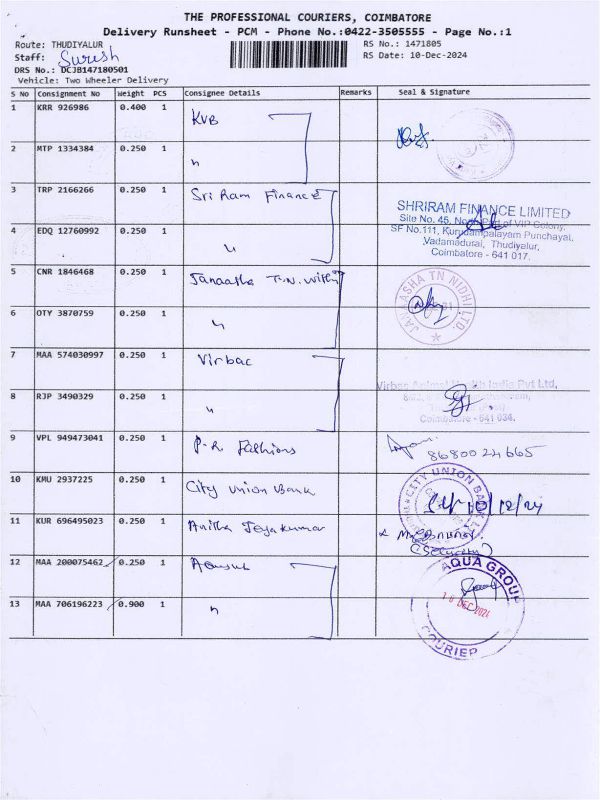 THE PROFESSIONAL COURIERS, COIMBATORE
Delivery Runsheet - PCM - Phone No.:0422-3505555 - Page No.:1
Route: THUDIYALUR
RS No.: 1471805
Staff: Suresh
RS Date: 10-Dec-2024
DRS No.: DCJB147180501
Vehicle: Two Wheeler Delivery
S No Consignment No Weight PCS Consignee Details Remarks Seal & Signature
1 KRR 926986 0.400 1 KVB
2 MTP 1334384 0.250 1 "
3 TRP 2166266 0.250 1 Sri Ram Finance
SHRIRAM FINANCE LIMITED
Site No. 45, Part of VIP Colony,
SF No.111, Kurudampalayam Punchayat,
Vadamadurai, Thudiyalur,
Coimbatore - 641 017.
4 EDQ 12760992 0.250 1 "
5 CNR 1846468 0.250 1 T.N.
TN NIDHI LTD
6 OTY 3870759 0.250 1 "
7 MAA 574030997 0.250 1 Virbac
Virbac Animal Health India Pvt Ltd,
Coimbatore - 641 034.
8 RJP 3490329 0.250 1 "
9 VPL 949473041 0.250 1 P.R. Fashions
86800 24665
10 KMU 2937225 0.250 1 City Union Bank
CITY UNION BANK
10/12/24
11 KUR 696495023 0.250 1 Anitha Jeyakumar
(Security)
12 MAA 200075462 0.250 1
AQUA GROUP
10 DEC 2024
COURIER
13 MAA 706196223 0.900 1 "